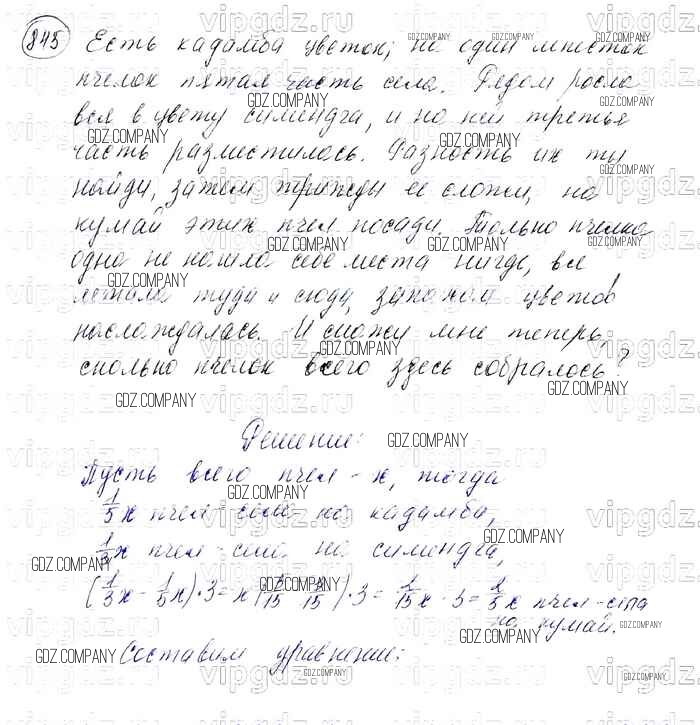 845 Есть кадамба цветок; на один лепесток
пчелок пятая часть села. Рядом росла
вся в цвету сименгда, и на ней третья
часть разместилась. Разность их ты
найди, затем трижды ее сложи, на
кумай этих пчел посади. Только пчелка
одна не нашла себе места нигде, все
летала туда и сюда, запахом цветов
наслаждалась. И скажи мне теперь,
сколько пчелок всего здесь собралось?
Решение:
Пусть всего пчел - x, тогда
1/5 x пчел - село на кадамба,
1/3 x пчел - село на сименгда,
(1/3 x - 1/5 x) · 3 = x( /15 /15) · 3 = 2/15 x · 3 = 2/5 x пчел - села
на кумай.
Составим уравнение: